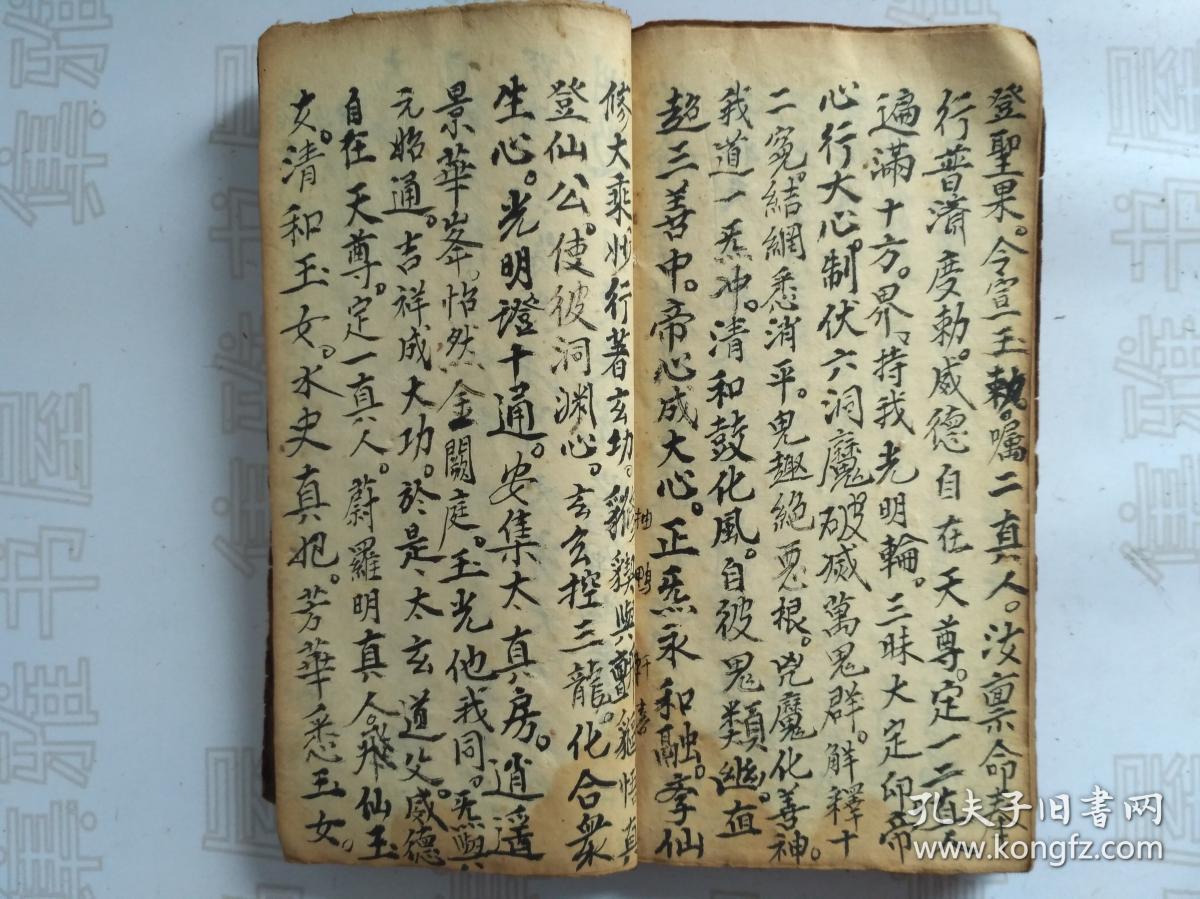 登聖果。今宣玉勅。囑二真人。汝禀命
行普濟度勅。威德自在天尊。定一二真
遍滿十方。界。持我光明輪。三昧大定印帝
心行大心。制伏六洞魔。破滅萬鬼群。解釋十
二冤。結網悉消平。鬼趣絕惡根。兇魔化善神。
我道一炁冲。清和鼓化風。自彼鬼類
超三善中。帝心成大心。正炁永和融。仙
修大乘妙行著玄功。與悟真
登仙公。使彼洞渊心。玄玄控三龍。化合衆
生心。光明證十通。安集太真房。逍遥
景華峯。怡然金闕庭。玉光他我同。炁與
元始通。吉祥成大功。於是太玄道父。威德
自在天尊。定一真人。蔚羅明真人。飛仙玉
女。清和玉女。水史真妃。芳華悉玉女。
孔夫子旧書网
www.kongfz.com
集雅书屋